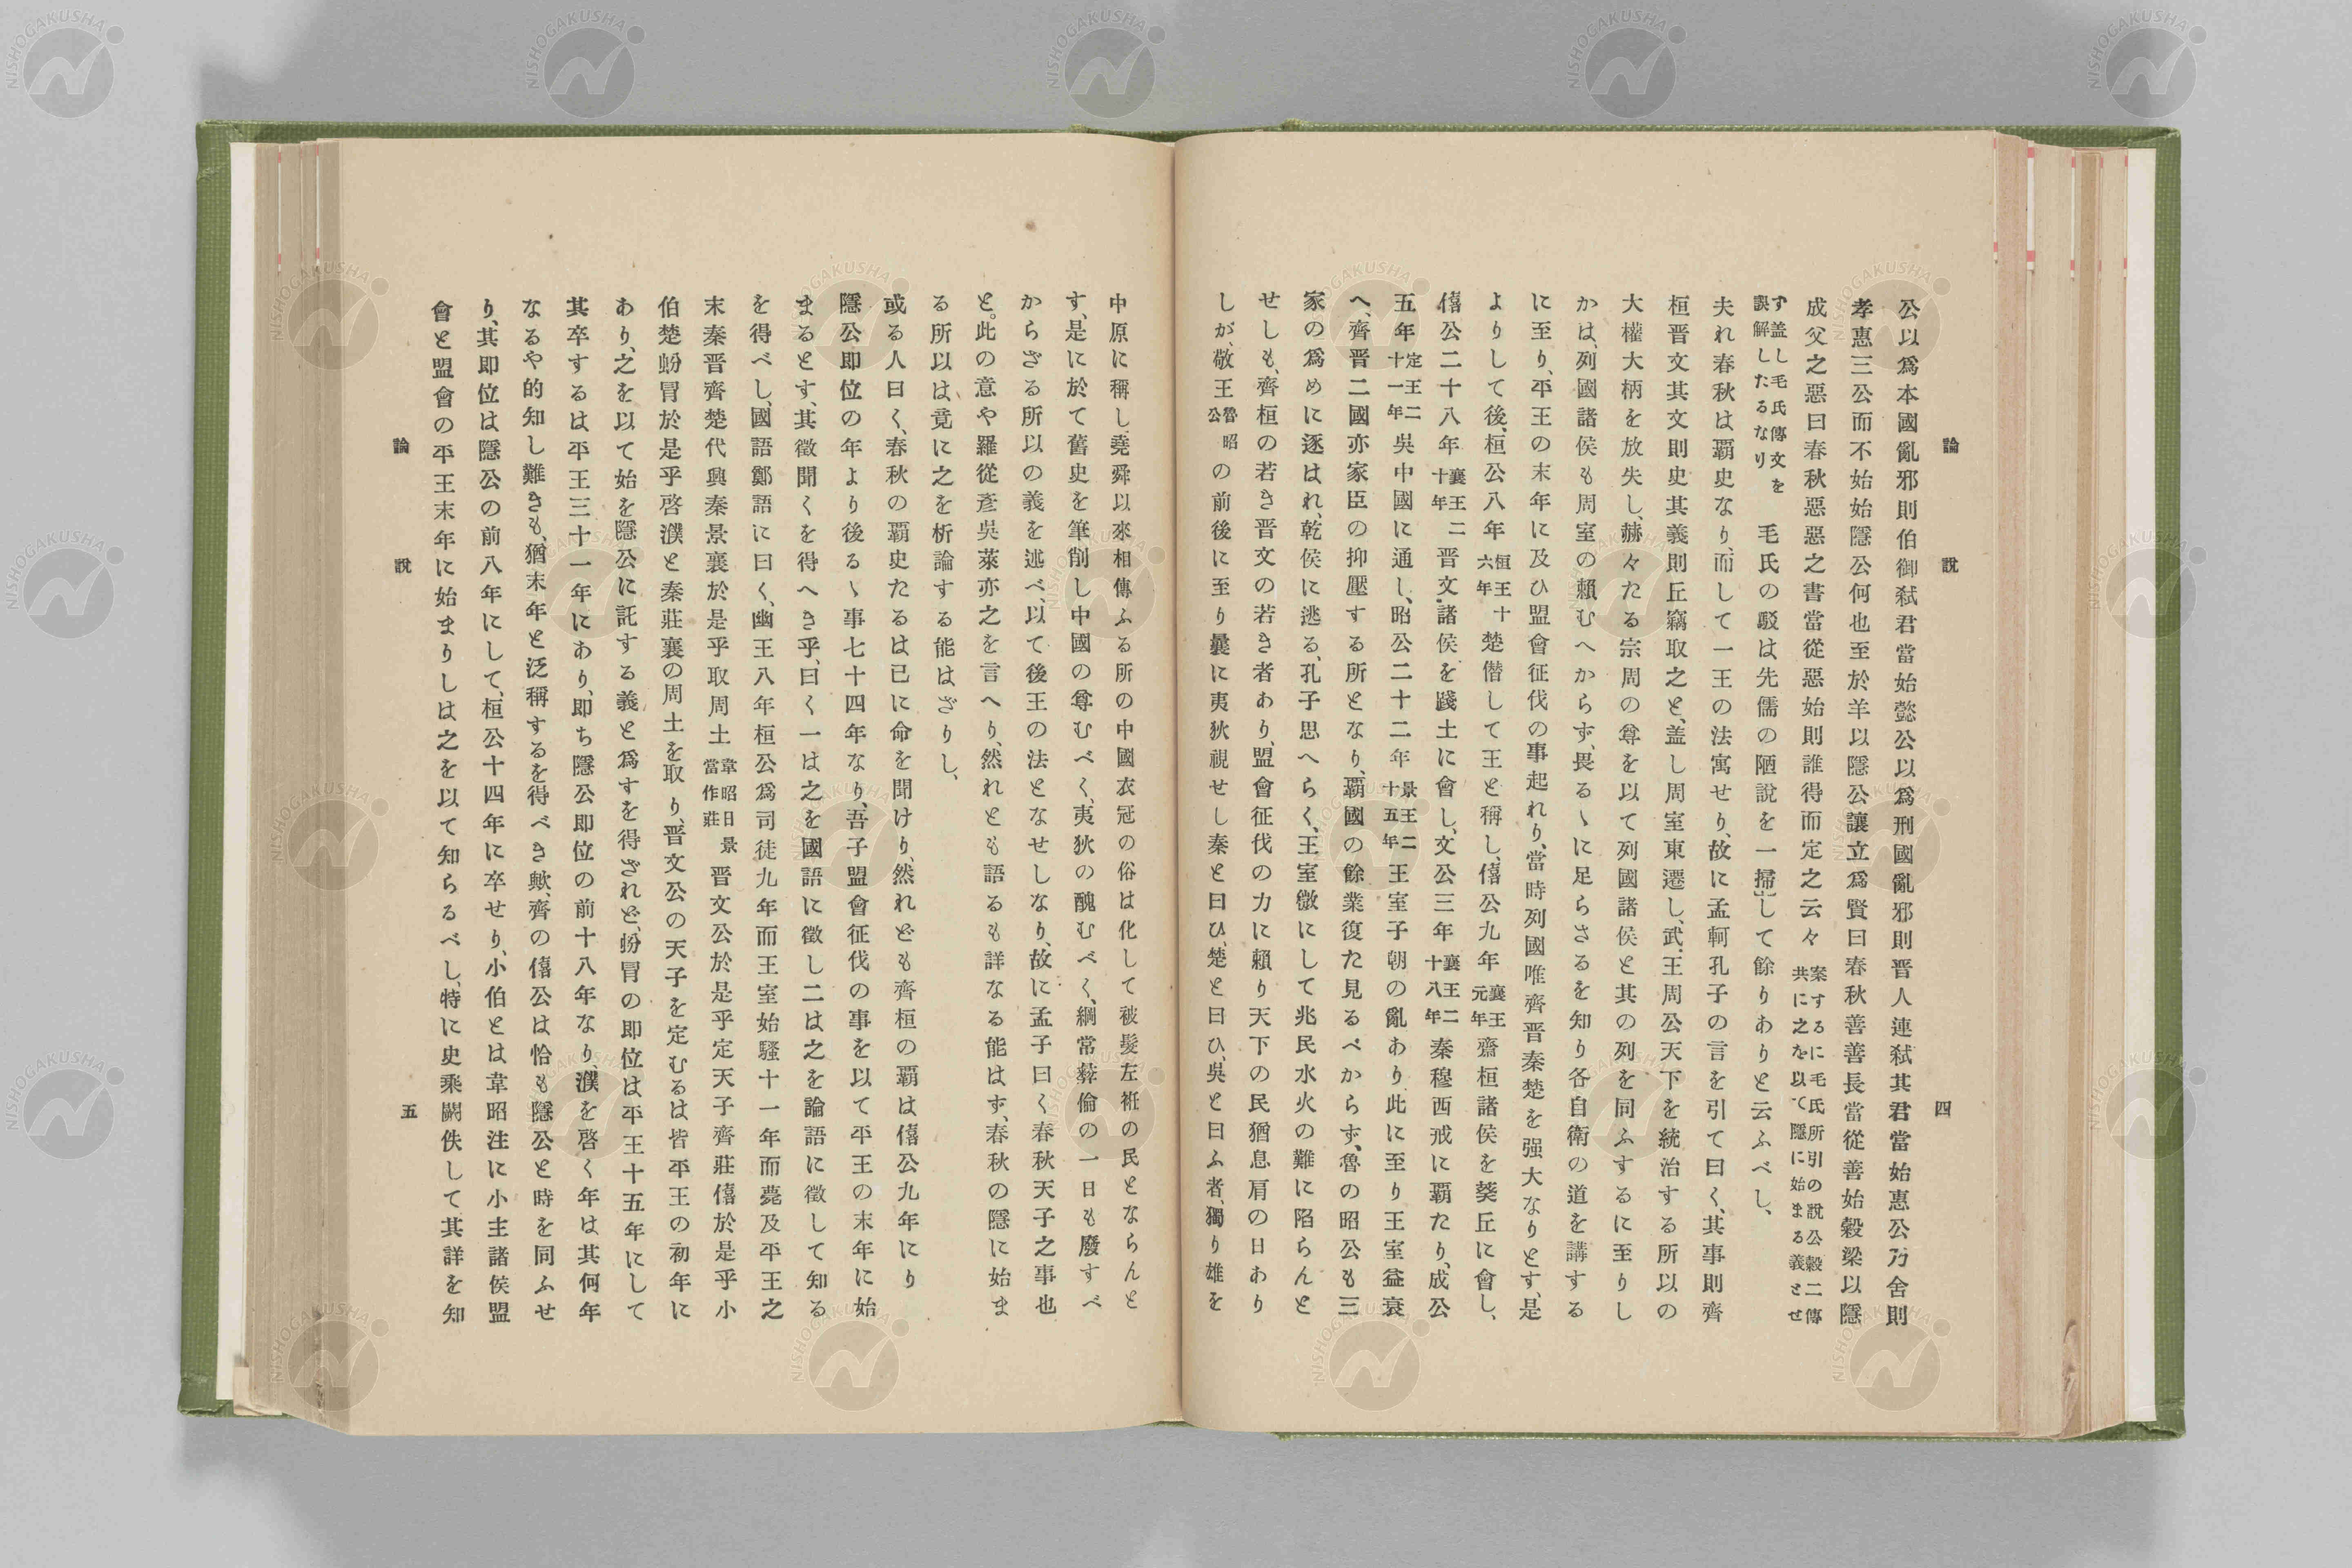 論說
四
公以爲本國亂邪則伯御弑君當始懿公以爲刑國亂邪則晋人連弑其君當始惠公乃舍則
孝惠三公而不始始隱公何也至於羊以隱公讓立爲賢曰春秋善善長當從善始穀梁以隱
成父之惡曰春秋惡惡之書當從惡始則誰得而定之云々 案するに毛氏所引の說公穀二傳
共に之を以て隱に始まる義とせ
す盖し毛氏傳文を
誤解したるなり 毛氏の駁は先儒の陋說を一掃して餘りありと云ふべし、
夫れ春秋は覇史なり、而して一王の法寓せり、故に孟軻孔子の言を引て曰く、其事則齊
桓晋文其文則史其義則丘竊取之と、盖し周室東遷し、武王周公天下を統治する所以の
大權大柄を放失し、赫々たる宗周の尊を以て列國諸侯と其の列を同ふするに至りし
かは、列國諸侯も周室の賴むへからす、畏るゝに足らさるを知り各自衛の道を講する
に至り、平王の末年に及ひ盟會征伐の事起れり、當時列國唯齊晋秦楚を强大なりとす、是
よりして後、桓公八年 桓王十
六年 楚僭して王と稱し、僖公九年 襄王
元年 齋桓諸侯を葵丘に會し、
僖公二十八年 襄王二
十年 晋文諸侯を踐土に會し、文公三年 襄王二
十八年 秦穆西戒に覇たり、成公
五年 定王二
十一年 吳中國に通し、昭公二十二年 景王二
十五年 王室子朝の亂あり此に至り王室益衰
へ、齊晋二國亦家臣の抑壓する所となり、覇國の餘業復た見るべからず、魯の昭公も三
家の爲めに逐はれ、乾侯に逃る、孔子思へらく、王室微にして兆民水火の難に陷らんと
せしも、齊桓の若き晋文の若き者あり、盟會征伐の力に賴り天下の民猶息肩の日あり
しが、敬王 魯昭
公 の前後に至り曩に夷狄視せし秦と曰ひ、楚と曰ひ、吳と曰ふ者、獨り雄を
中原に稱し、堯舜以來相傳ふる所の中國衣冠の俗は化して被髮左衽の民とならんと
す、是に於て舊史を筆削し中國の尊むべく、夷狄の醜むべく、綱常彜倫の一日も廢すべ
からざる所以の義を述べ、以て後王の法となせしなり、故に孟子曰く春秋天子之事也
と。此の意や羅從彥吳萊亦之を言へり、然れとも語るも詳なる能はす、春秋の隱に始ま
る所以は、竟に之を析論する能はざりし、
或る人曰く、春秋の覇史たるは已に命を聞けり、然れども齊桓の覇は僖公九年にり
隱公即位の年より後るゝ事七十四年なり、吾子盟會征伐の事を以て平王の末年に始
まるとす、其徵聞くを得へき乎、曰く一は之を國語に徵し二は之を論語に徵して知る
を得べし、國語鄭語に曰く、幽王八年桓公爲司徒九年而王室始騷十一年而薨及平王之
末秦晋齊楚代興秦景襄於是乎取周土 韋昭曰景
當作莊 晋文公於是乎定天子齊莊僖於是乎小
伯楚蚡冒於是乎啓濮と秦莊襄の周土を取り、晋文公の天子を定むるは皆平王の初年に
あり、之を以て始を隱公に託する義と爲すを得ざれど、蚡冒の即位は平王十五年にして
其卒するは平王三十一年にあり、即ち隱公即位の前十八年なり、濮を啓く年は其何年
なるや的知し難きも、猶末年と泛稱するを得べき歟、齊の僖公は恰も隱公と時を同ふせ
り、其即位は隱公の前八年にして、桓公十四年に卒せり、小伯とは韋昭注に小主諸侯盟
會と盟會の平王末年に始まりしは之を以て知らるべし、特に史乘闕佚して其詳を知
論說
五